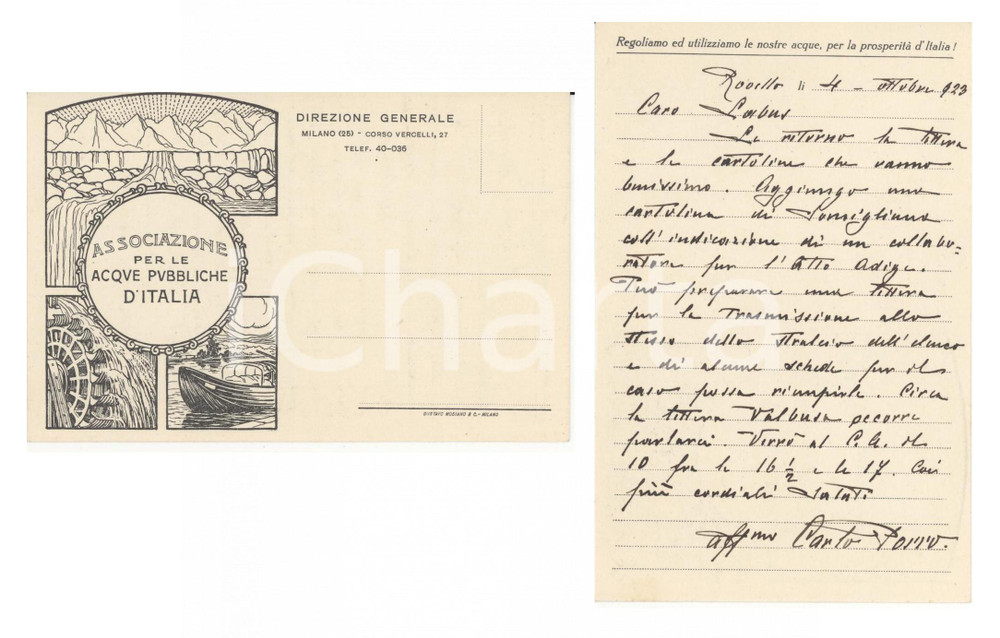 ASSOCIAZIONE
PER LE
ACQVE PVBBLICHE
D'ITALIA
DIREZIONE GENERALE
MILANO (25) - CORSO VERCELLI, 27
TELEF. 40-036
GUSTAVO MODIANO & C. - MILANO
Regoliamo ed utilizziamo le nostre acque, per la prosperità d'Italia!
Rovello li 4 - ottobre 923
Caro Labus
Le ritorno la lettera
e le cartoline che vanno
benissimo. Aggiungo una
cartolina di Somigliana
coll'indicazione di un collabo=
ratore per l'Alto Adige.
Può preparare una lettera
per la trasmissione allo
stesso dello stralcio dell'elenco
e di alcune schede per il
caso possa riempirle. Circa
la lettera Valbusa occorre
parlarci. Verrò al C.A. il
10 fra le 16 1/2 e le 17. Coi
più cordiali saluti
aff.mo Carlo Porro.
iCharta